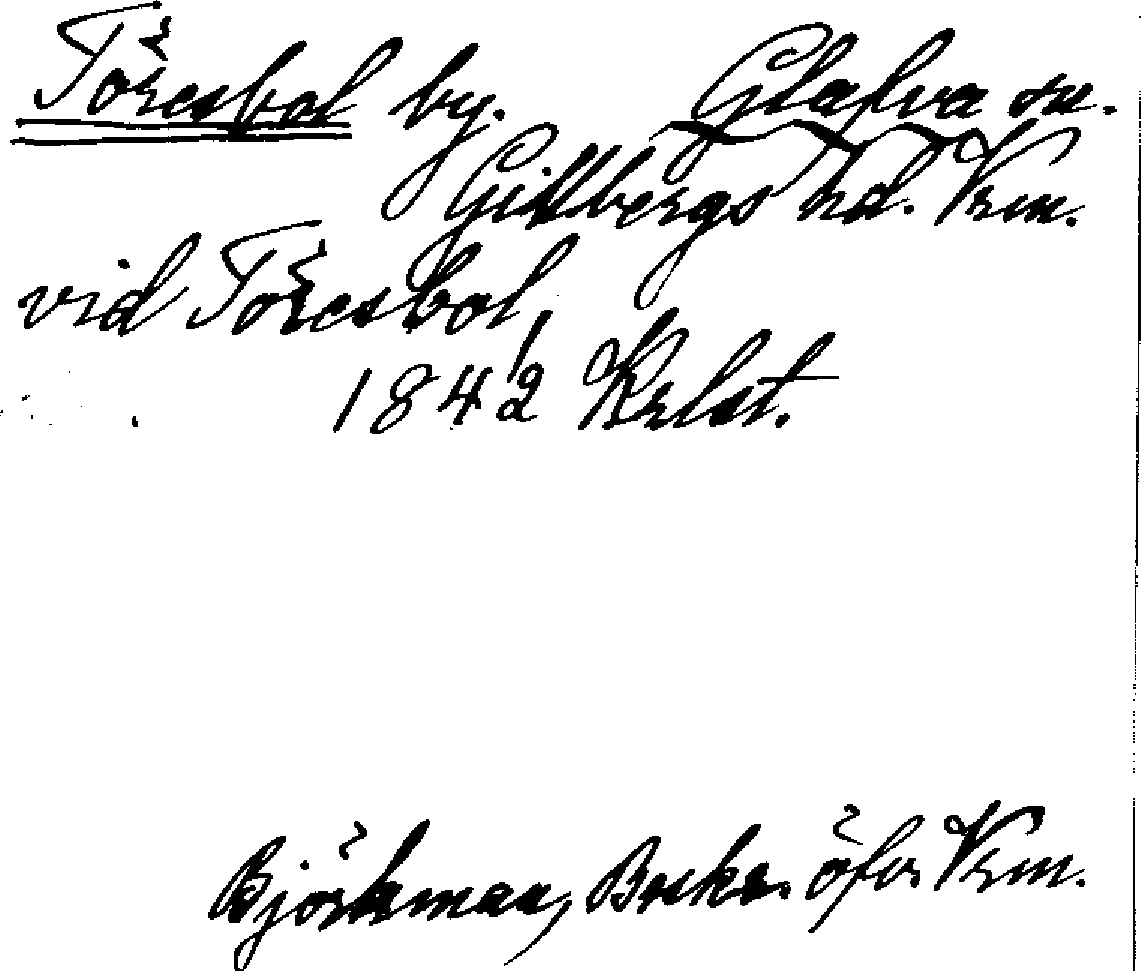 Töresbol by. Glafva sn.
Gillbergs hd. Vrm.
vid Töresbol,
1842 Krlst.
Björkman, Beskr. öfver Vrm.